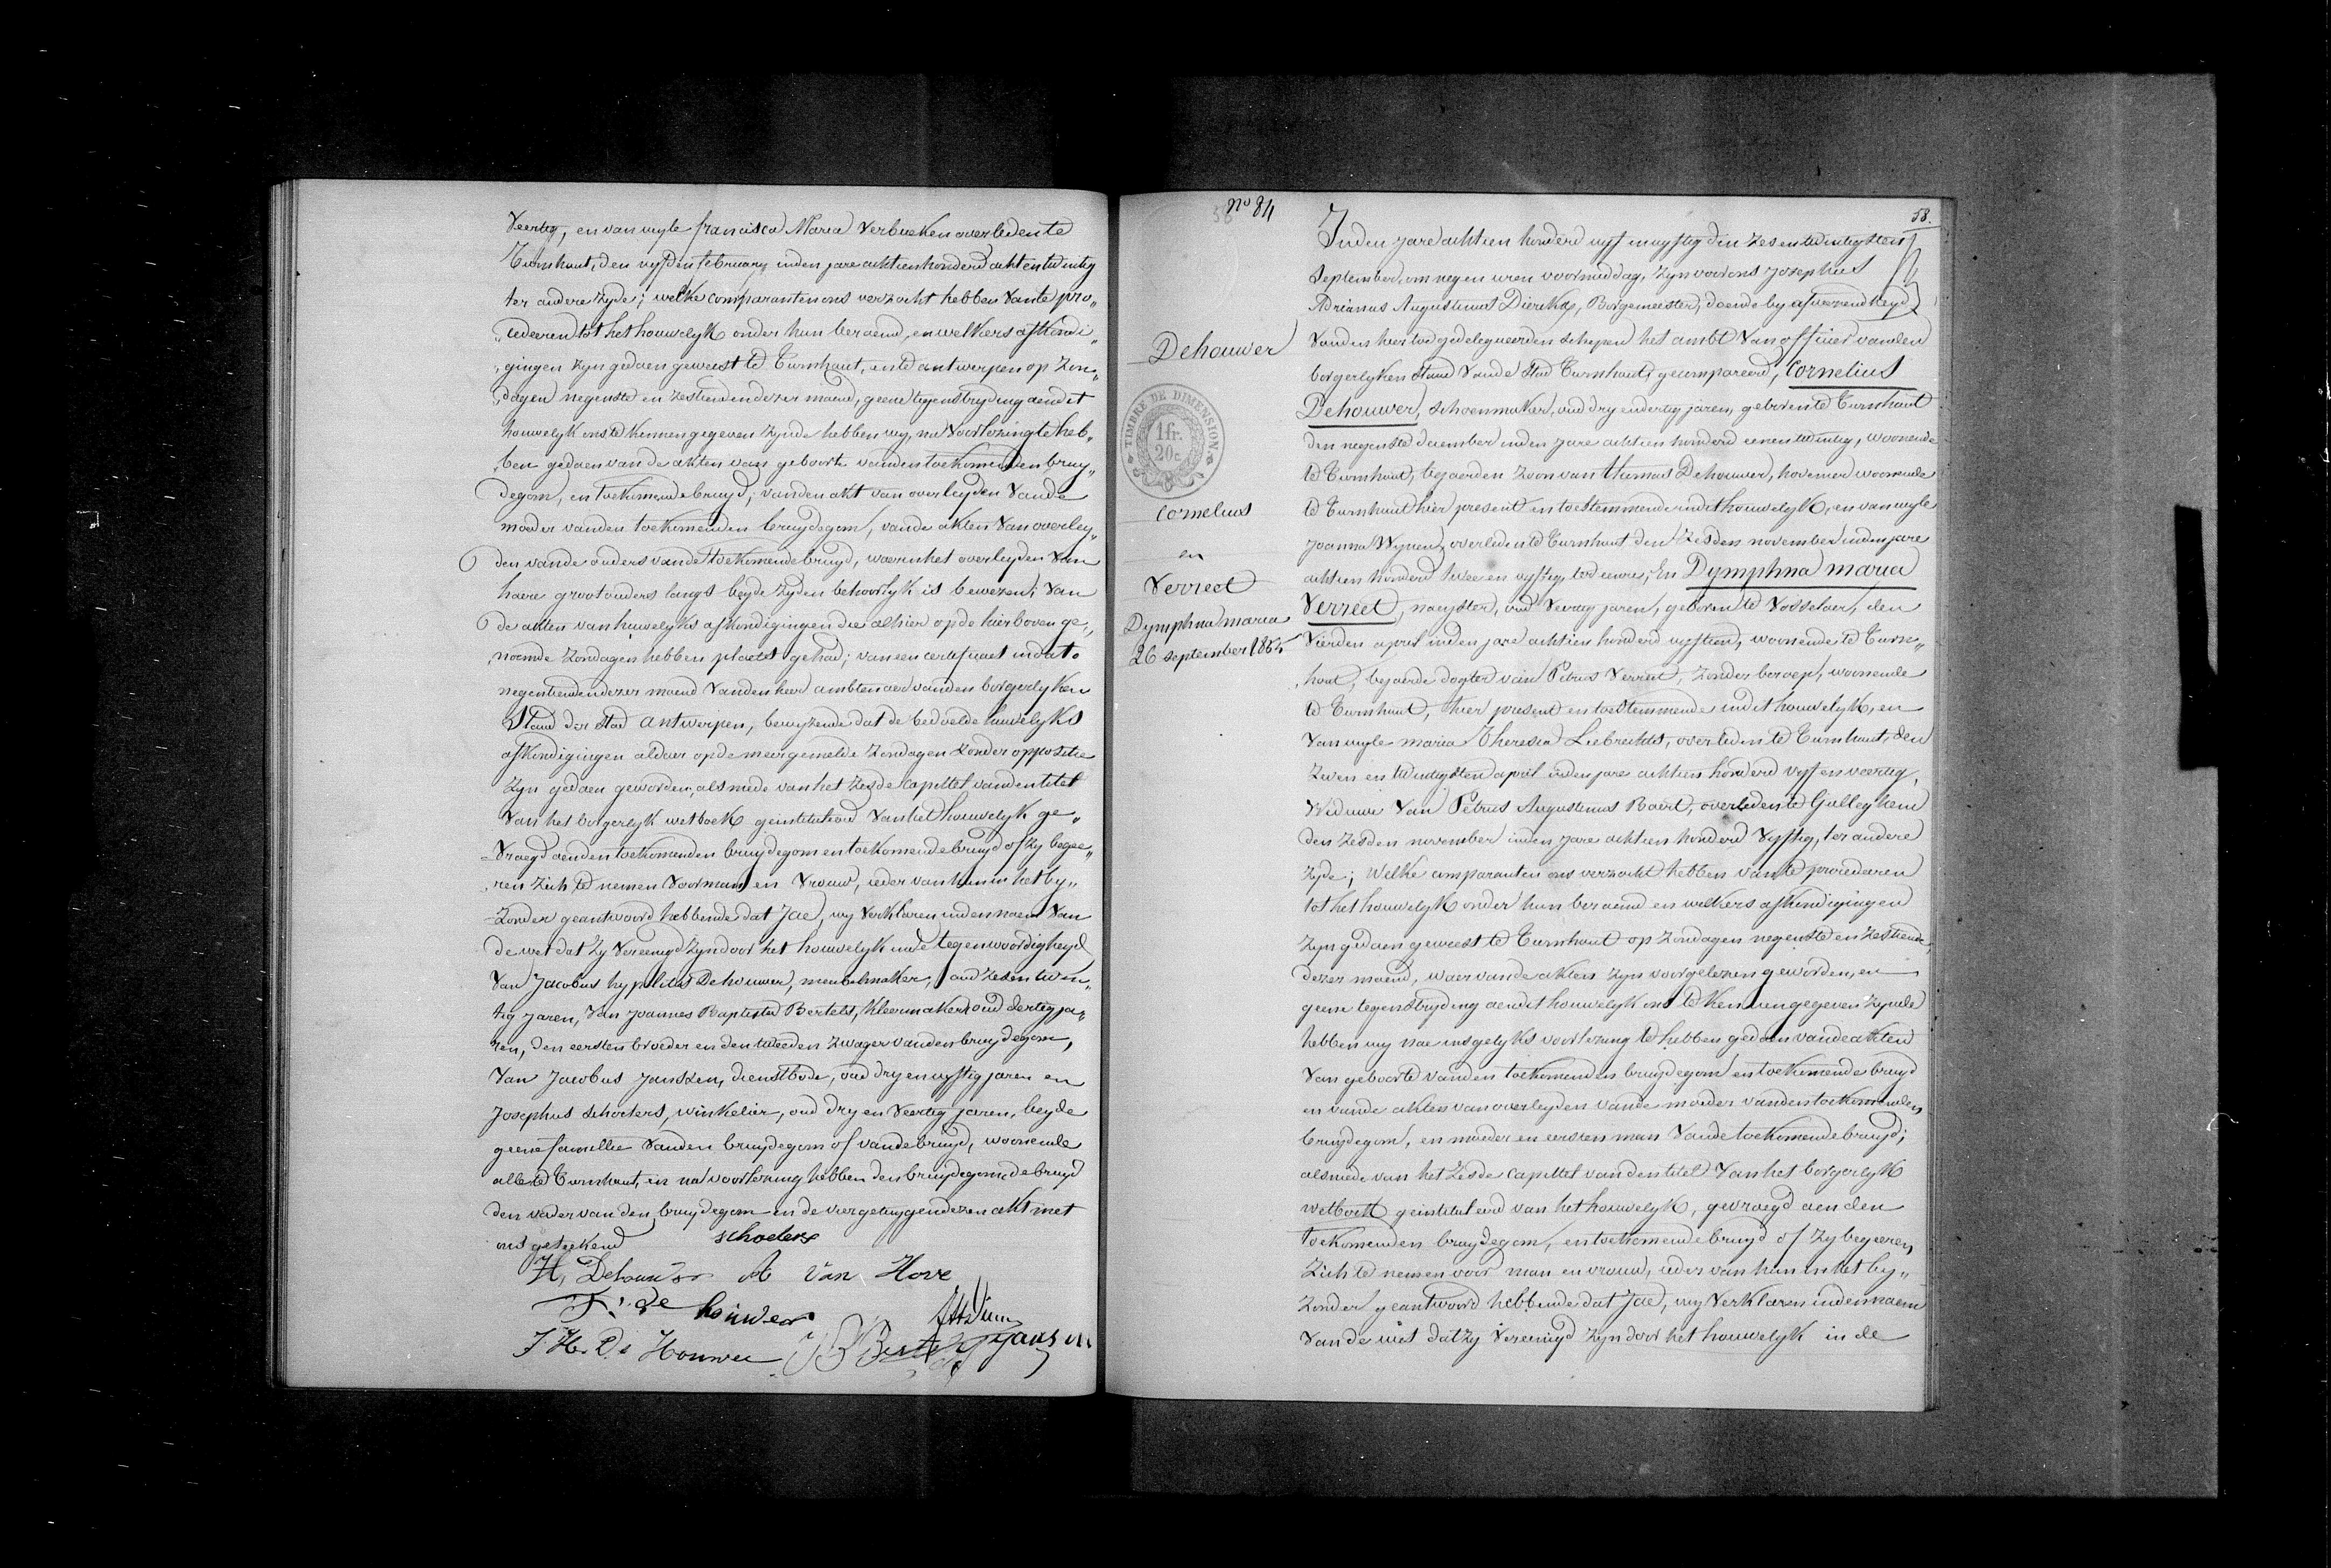 Veertig, en van wyle francisca Maria Verbueken overleden te
Turnhout, den vyfden february inden jare achtienhonderd achtentwintig
ter andere zyde; welke comparanten ons verzocht hebben van te pro„
„cederen tot het houwelyk onder hun beraemd, en welkers afkondi„
„gingen zyn gedaen geweest te Turnhout, en te antwerpen op zon„
„dagen negenste en zestienden dezer maend, geene tegenstryding aen dit
houwelyk ons te kennen gegeven zynde hebben wy, na voorlezing te heb„
„ben gedaen van de akten van geboorte vanden toekomenden bruy„
degom, en toekomende bruyd; vanden akt van overleyden vande
moeder vanden toekomenden bruydegom, vande akten van overley„
den vande ouders vande toekomende bruyd, waerin het overleyden van
haere grootouders langs beyde zyden behoorlyk is bewezen; van
de akten van huwelyks afkondigingen die alhier op de hierboven ge„
„noemde zondagen hebben plaets gehad; van een certificaet in dato
negentienden dezer maend vanden heer ambtenaer vanden borgerlyken
Stand der stad antwerpen, bewyzende dat de bedoelde huwelyks
afkondigingen aldaer op de meergemelde zondagen zonder oppositie
zyn gedaen geworden, alsmede van het zesde capittel vanden titel
van het borgerlyk wetboek geintituleerd van het houwelyk ge„
„vraegd aenden toekomenden bruydegom en toekomende bruyd of zy begee„
„ren zich te nemen voor man en vrouw, ieder van hun in het by„
zonder geantwoord hebbende dat Jae, wy verklaren in den naem van
de wet dat zy vereenigd zyn door het houwelyk in de tegenwoordigheyd
van Jacobus hypolitus Dehouwer, meubelmaker, oud zesentwin„
tig jaren, van Joannes Baptista Bertels, kleermaker oud dertig ja„
ren, den eersten broeder en den tweeden zwager vanden bruydegom,
van Jacobus Janssen, dienstbode, oud dry en vyftig jaren en
Josephus schoeters, winkelier, oud dry en veertig jaren, beyde
geene famillie vanden bruydegom of vande bruyd, woonende
alle te Turnhout, en na voorlezing hebben den bruydegom, de bruyd
den vader van den bruydegom en de vier getuygen dezen akt met
ons geteekend
schoeters
H. Dehouwer A Van Hove
F. de houwer
J. H. De Houwer JB Bertels Janssen
nº 84
58.
Dehouwer
TIMBRE DE DIMENSION
1fr.
20c
Cornelius
en
Verreet
Dymphna maria
26 september 1855
Inden jare achtien honderd vyf en vyftig den zesentwintigsten
September, om negen uren voormiddag, zyn voor ons Josephus
Adrianus Augustinus Dierckx, Borgemeester, doende by afwezendheyd
vanden hiertoe gedelegueerden schepen het ambt van officier vanden
borgerlyken stand vande stad Turnhout, gecompareerd, Cornelius
Dehouwer, schoenmaker, oud dry en dertig jaren, geboren te Turnhout
den negenste december inden jare achtien honderd eenentwintig, woonende
te Turnhout, bejaerden zoon van thomas Dehouwer, hovenier woonende
te Turnhout hier present en toestemmende in dit houwelyk, en van wyle
Joanna Wynen, overleden te Turnhout den zesden november inden jare
achtien honderd twee en vyftig, ter eenre; En Dymphna maria
Verreet, naeyster, oud veertig jaren, geboren te Vosselaer, den
Vierden april inden jare achtien honderd vyftien, woonende te Turn„
hout, bejaerde dogter van Petrus Verreet, zonder beroep, woonende
te Turnhout, hier present en toestemmende in dit houwelyk, en
van wyle maria Theresia Liebrechts, overleden te Turnhout, den
zeven en twintigsten april inden jare achtien honderd vyf en veertig,
Weduwe van Petrus Augustinus Baert, overleden te Gulleghem
den zesden november inden jare achtien honderd vyftig, ter andere
zyde; welke comparanten ons verzocht hebben van te procederen
tot het houwelyk onder hun beraemd en welkers afkondigingen
zyn gedaen geweest te Turnhout op zondagen negenste en zestiende
dezer maend, waer van de akten zyn voorgelezen geworden, en
geene tegenstryding aen dit houwelyk ons te kennen gegeven zynde
hebben wy nae insgelyks voorlezing te hebben gedaen vande akten
van geboorte vanden toekomenden bruydegom en toekomende bruyd
en vande akten van overleyden vande moeder vanden toekomenden
bruydegom, en moeder en eersten man vande toekomende bruyd;
alsmede van het zesde capittel van den titel van het borgerlyk
wetboek geintituleerd van het houwelyk, gevraegd aen den
toekomenden bruydegom, en toekomende bruyd of zy begeeren
zich te nemen voor man en vrouw, ieder van hun in het by„
zonder geantwoord hebbende dat Jae, wy verklaren in den naem
van de wet dat zy vereenigd zyn door het houwelyk in de